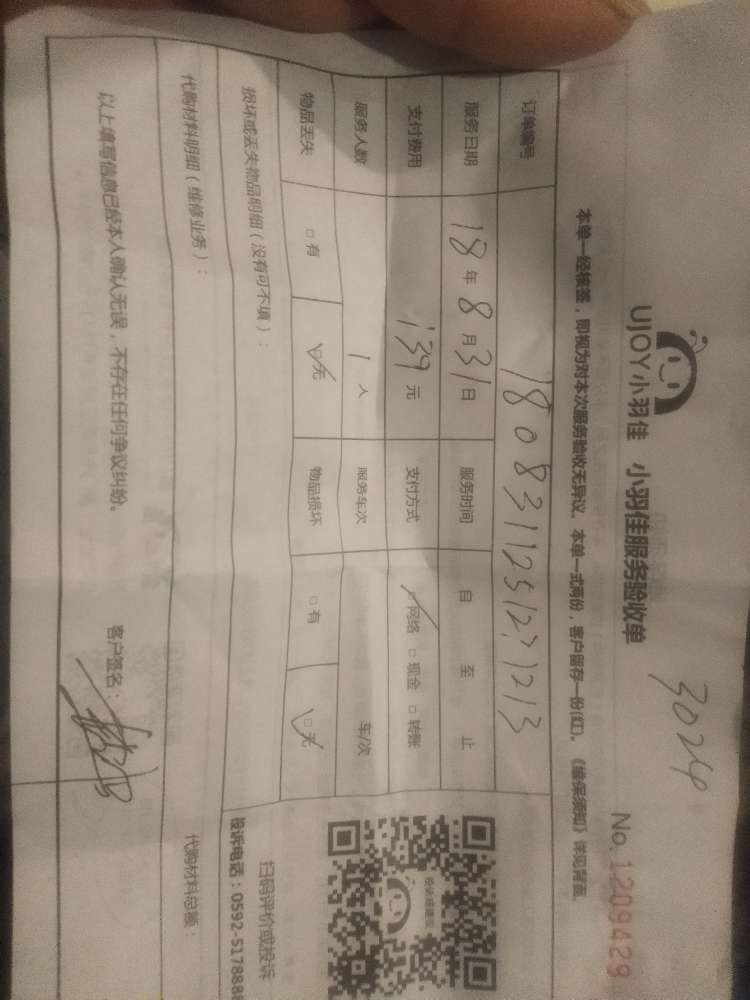 3024
UJOY小羽佳 小羽佳服务验收单 No.1209429
本单一经核签，即视为对本次服务验收无异议。本单一式两份，客户留存一份(红)。《维保须知》详见背面
订单编号
服务日期 18年8月31日 服务时间 自 至 止
支付费用 139元 支付方式 ☑网络 □现金 □转账
服务人数 1人 服务车次 车/次
物品丢失 □有 ☑无 物品损坏 □有 ☑无
损坏或丢失物品明细（没有可不填）：
扫码评价或投诉
投诉电话：0592-5178888
代购材料明细（维修业务）：
代购材料总额：
以上填写信息已经本人确认无误，不存在任何争议纠纷。
客户签名：